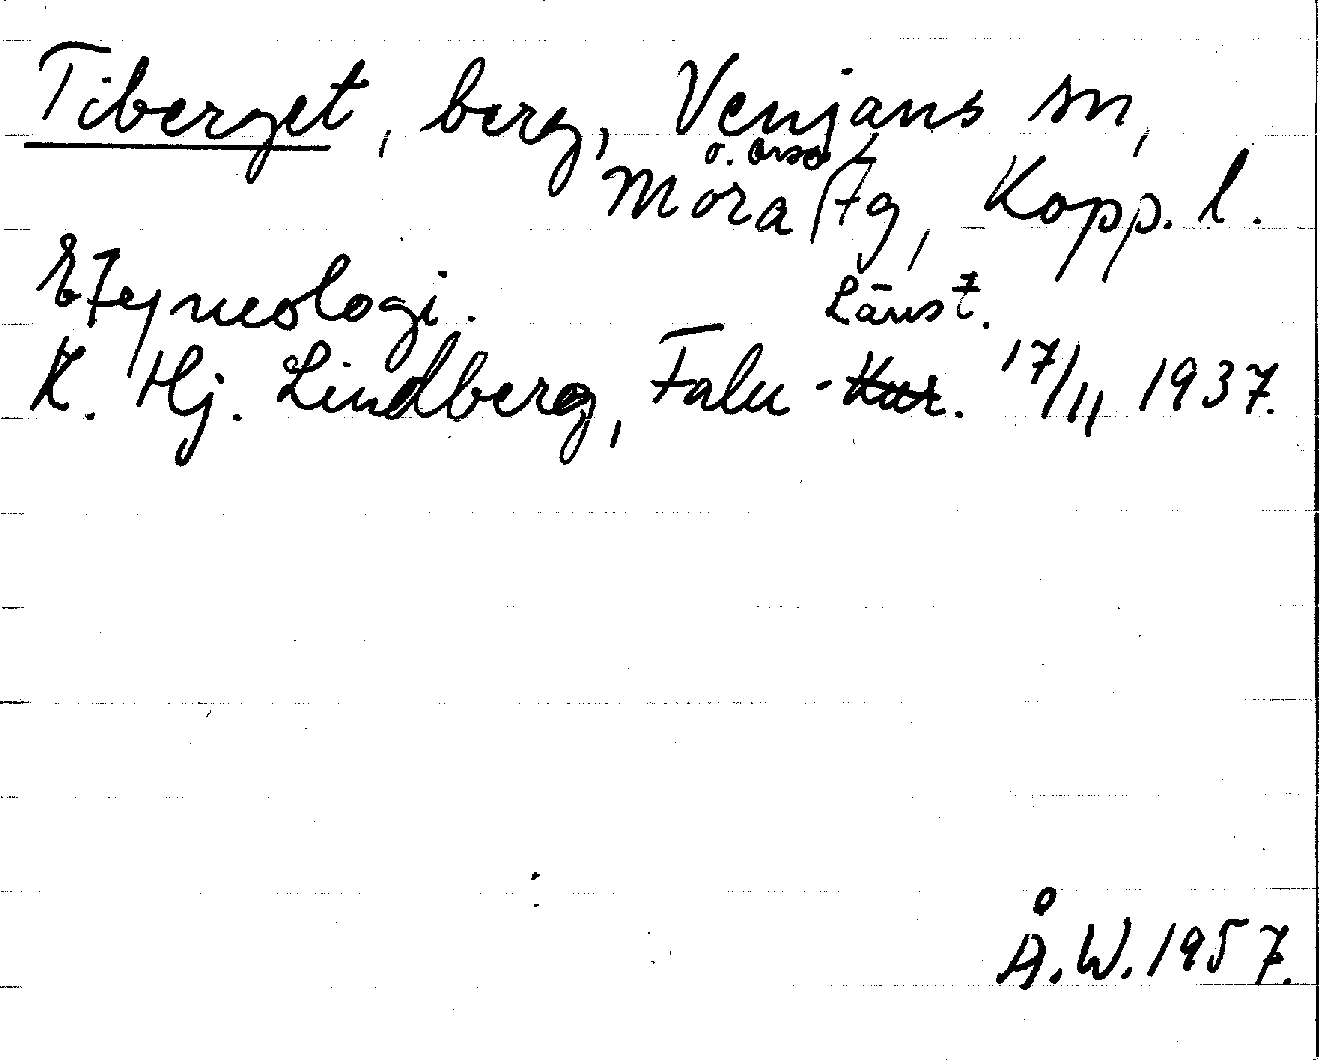 Tiberget, berg, Venjans sn,
Mora o. Orsa tg, Kopp. l.
Etymologi.
K. Hj. Lindberg, Falu-Kur. Länst. 17/11 1937.
Å.W. 1957.